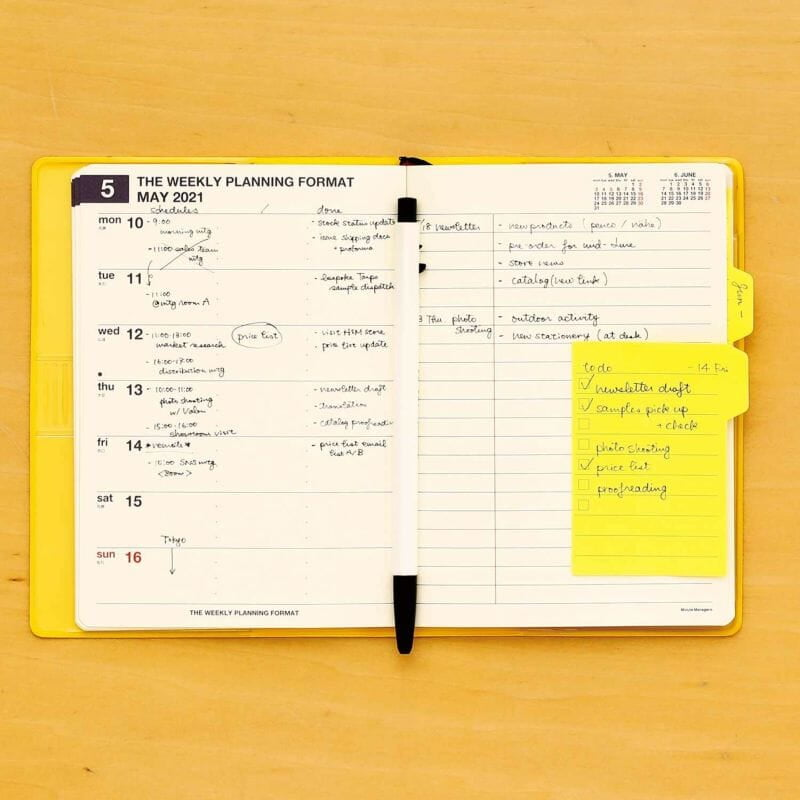 5
THE WEEKLY PLANNING FORMAT
MAY 2021
schedules / done
mon 10
- 9:00
morning mtg
- 11:00 sales team
mtg
- stock status update
- issue shipping docs
+ proforma
tue 11
- 11:00
@mtg room A
- bespoke Tarps
sample dispatch
wed 12
- 11:00-13:00
market research
- 16:00-17:00
distribution mtg
price list
- visit H&M store
- price list update
thu 13
- 10:00-11:00
photo shooting
w/ Valon
- 15:00-16:00
showroom visit
- newsletter draft
- translation
- catalog proofreading
fri 14
*remote*
- 10:00 SNS mtg
<Zoom>
- price list email
list A/B
sat 15
sun 16
Tokyo
THE WEEKLY PLANNING FORMAT
5. MAY
6. JUNE
/18 newsletter
- new products (penco / nahe)
- pre-order for mid-June
- store news
- catalog (new link)
Thu photo
shooting
- outdoor activity
- new stationery (at desk)
Jun -
to do - 14 Fri
newsletter draft
samples pick up
+ check
photo shooting
price list
proofreading